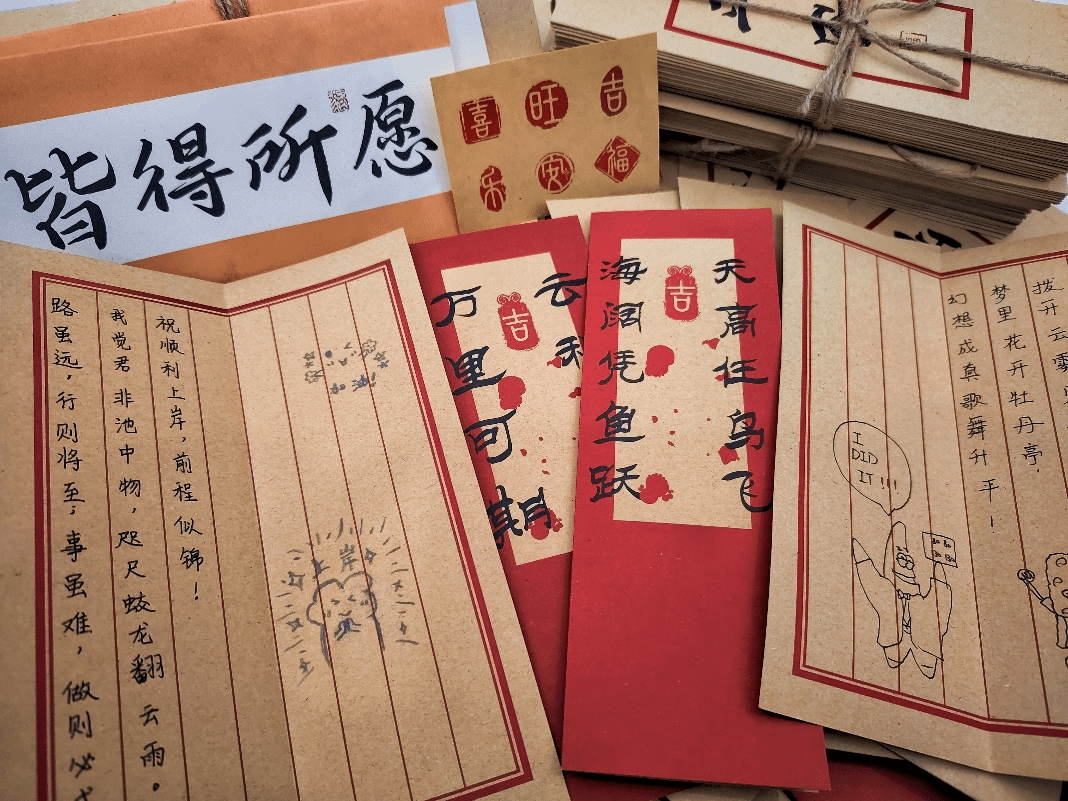 皆得所愿
喜 旺 吉
乐 安 福
路虽远，行则将至；事虽难，做则必
我觉君非池中物，咫尺蛟龙翻云雨。
祝顺利上岸，前程似锦！
上岸
吉
云
万里可期
吉
天高任鸟飞
海阔凭鱼跃
拨开云雾
梦里花开牡丹亭，
幻想成真歌舞升平！
I
DID
IT!!!